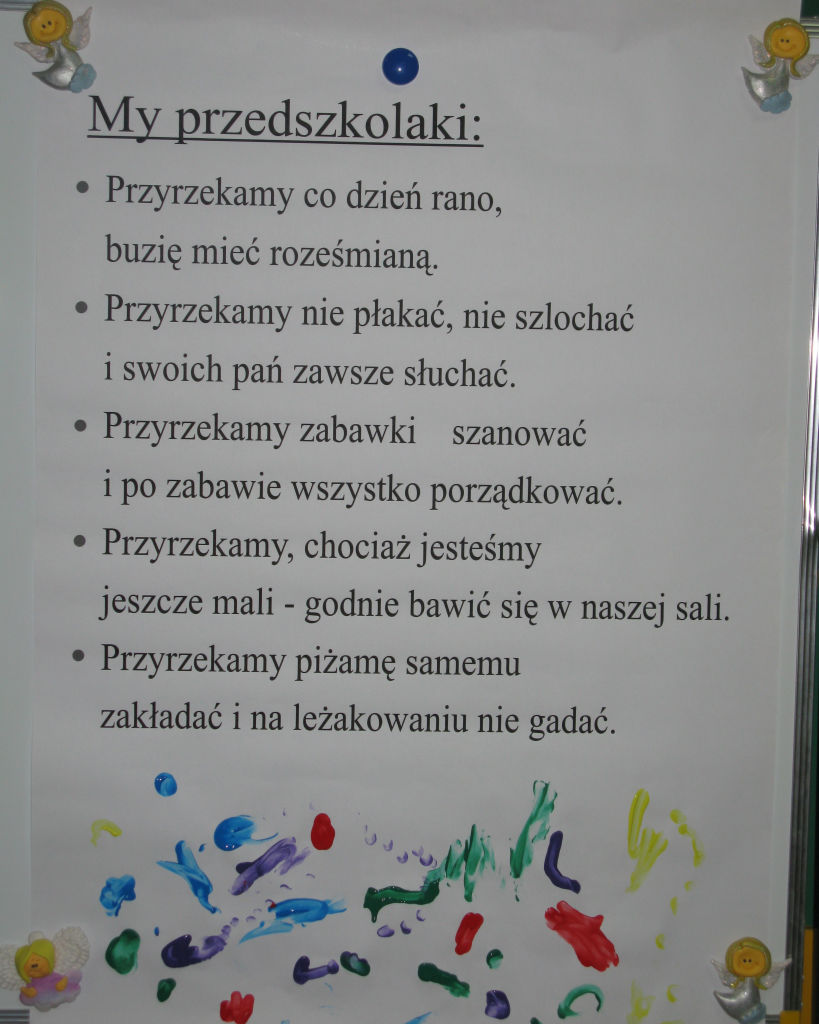 My przedszkolaki:
• Przyrzekamy co dzień rano,
buzię mieć roześmianą.
• Przyrzekamy nie płakać, nie szlochać
i swoich pań zawsze słuchać.
• Przyrzekamy zabawki szanować
i po zabawie wszystko porządkować.
• Przyrzekamy, chociaż jesteśmy
jeszcze mali - godnie bawić się w naszej sali.
• Przyrzekamy piżamę samemu
zakładać i na leżakowaniu nie gadać.